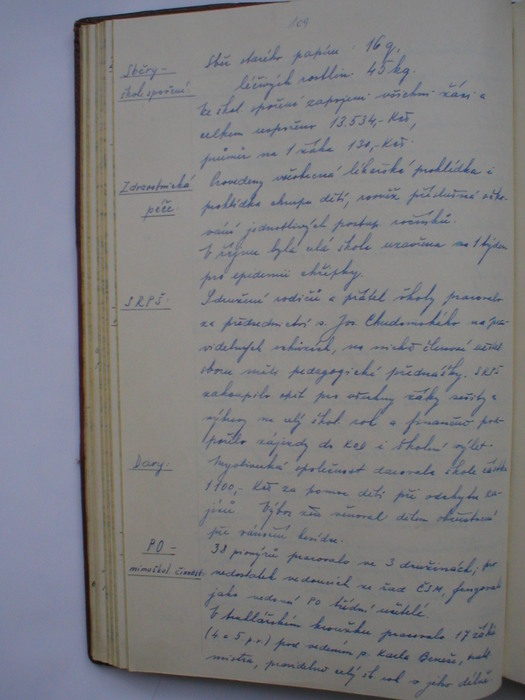 109
Sběry -
škol. spoření
Sběr starého papíru: 16 q,
léčivých rostlin: 45 kg.
Ve škol. spoření zapojeni všichni žáci a
celkem uspořeno 13.534,- Kčs,
průměr na 1 žáka 130,- Kčs.
Zdravotnická
péče:
Provedeny všeobecná lékařská prohlídka i
prohlídka chrupu dětí, rovněž příslušná očko-
vání jednotlivých postup. ročníků.
V říjnu byla celá škola uzavřena na 1 týden
pro epidemii chřipky.
SRPŠ:
Sdružení rodičů a přátel školy pracovalo
za předsednictví s. Jos. Chudomského na pra-
videlných schůzích, na nichž členové učitel.
sboru měli pedagogické přednášky. SRPŠ
zakoupilo opět pro všechny žáky sešity a
výkresy na celý škol. rok a finančně pod-
pořilo zájezdy do i školní výlet.
Dary:
Myslivecká společnost darovala škole částku
1.100,- Kčs za pomoc dětí při odchytu za-
jíců. Výbor žen věnoval dětem občerstvení
při vánoční besídce.
PO -
mimoškol. činnost:
38 pionýrů pracovalo ve 3 družinách; pro
nedostatek vedoucích z řad ČSM, fungovali
jako vedoucí PO třídní učitelé.
V kroužku pracovalo 17 žáků
(4. a 5. p. r.) pod vedením p. Karla Beneše,
mistra, pravidelně celý šk. rok a jeho